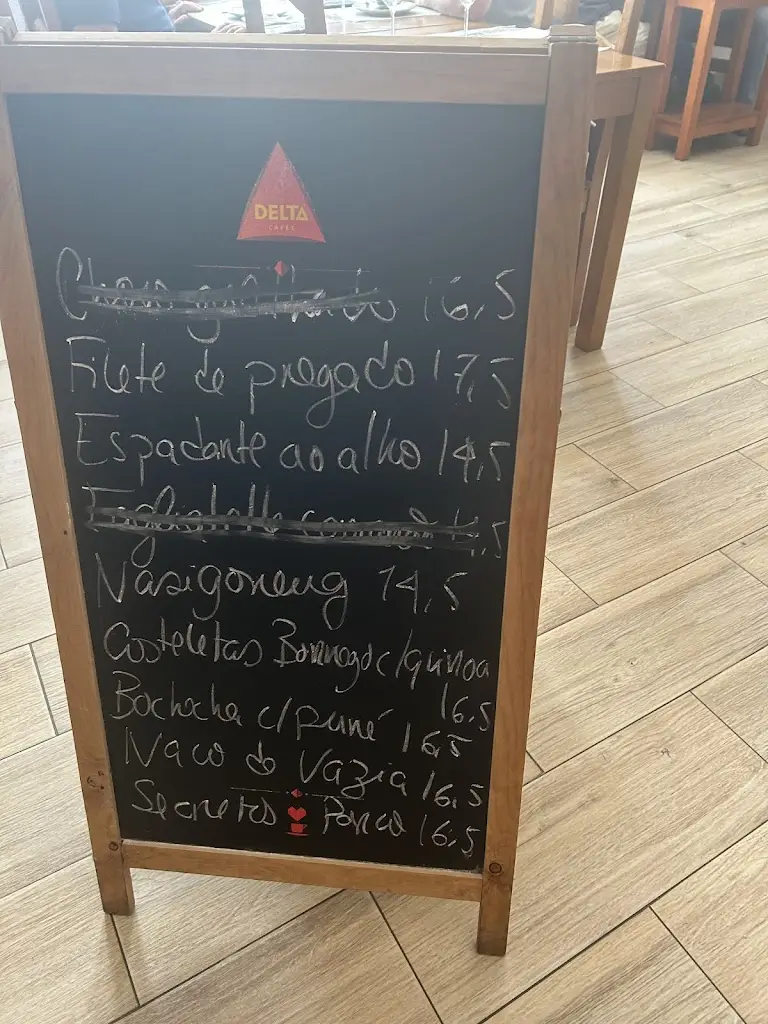 DELTA
CAFÉS
16,5
Filete de pregado 17,5
Espadante ao alho 14,5
Nasigoreng 14,5
Costeletas Borrego c/quinoa
16.5
Bochecha c/puré 16,5
Naco de Vazia 16,5
Secretos Porco 16,5